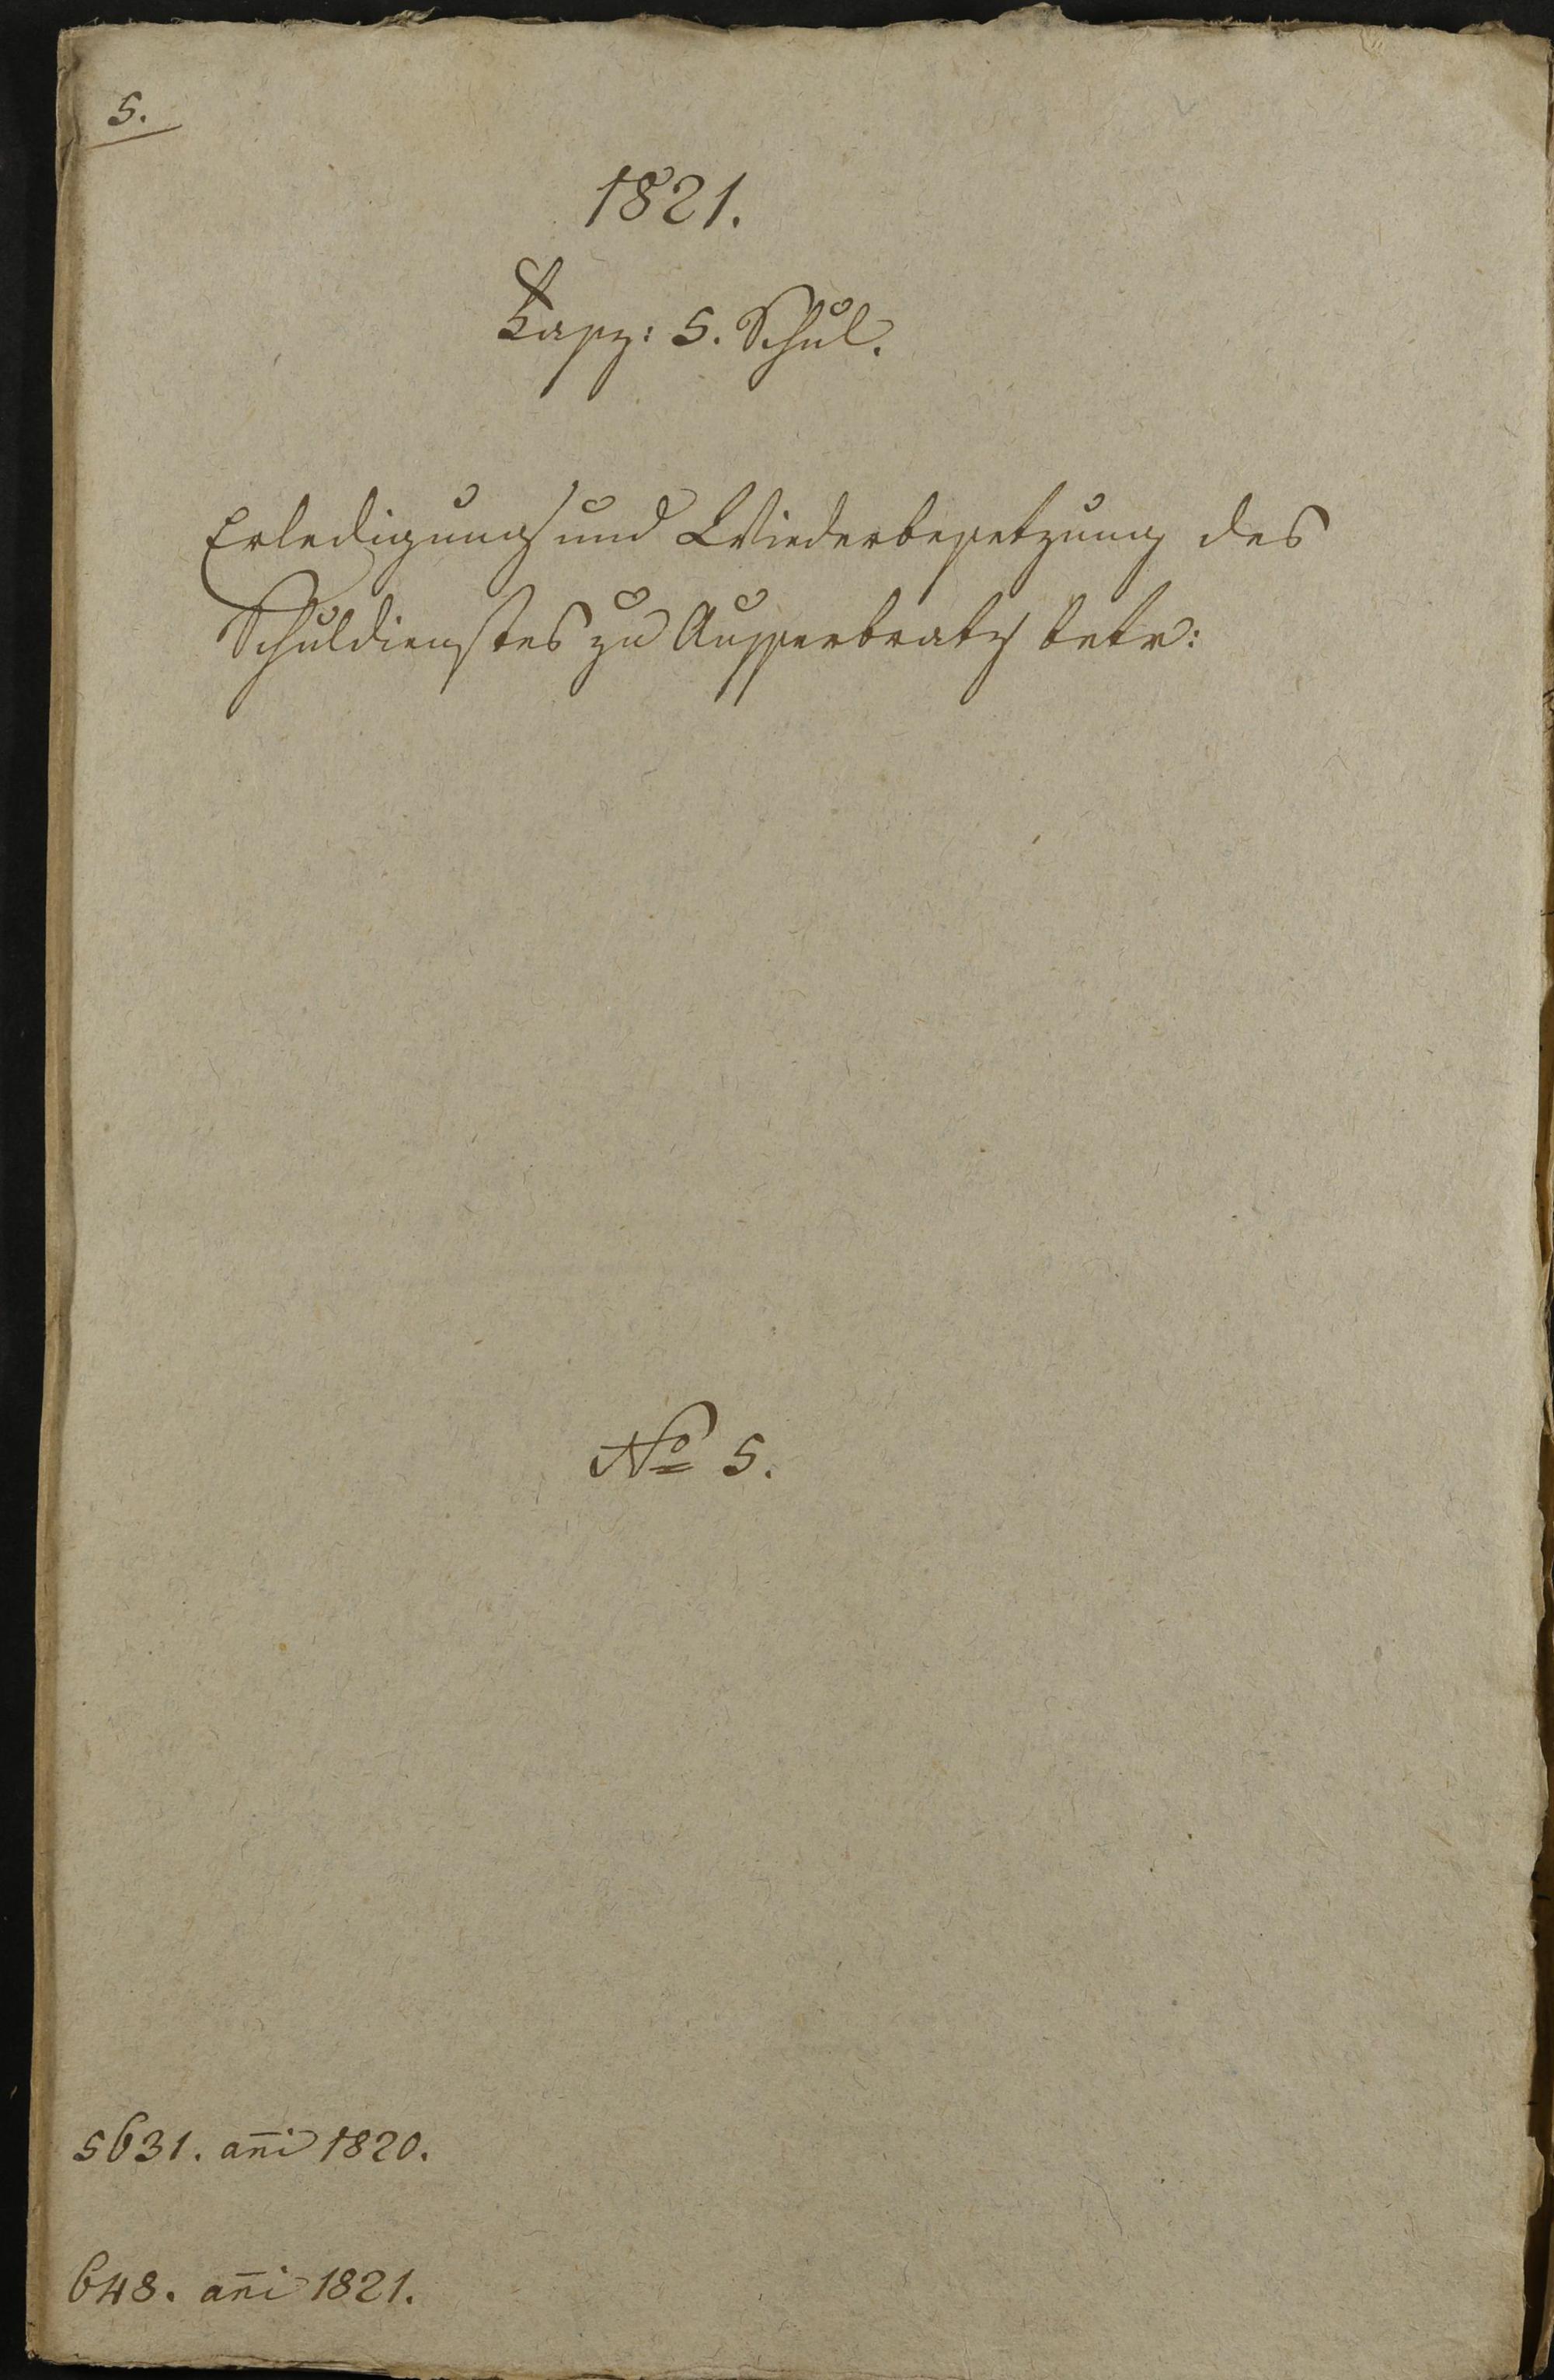 5.
1821.
Fasz: 5. Schul.
Erledigung und Wiederbesetzung des
Schuldienstes zu Ausserbratz betr:
No 5.
5631. an̄i 1820.
648. an̄i 1821.